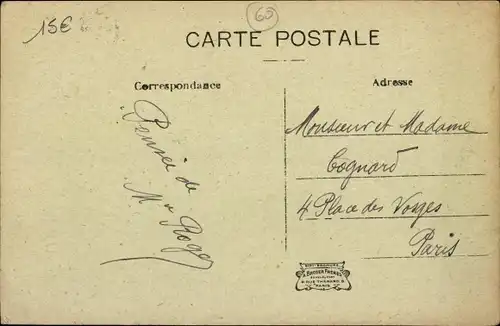 15€
60
CARTE POSTALE
Correspondance
Adresse
Pensée de
M Roger
Monsieur et Madame
Cognard
4 Place des Vosges
Paris
PARIS